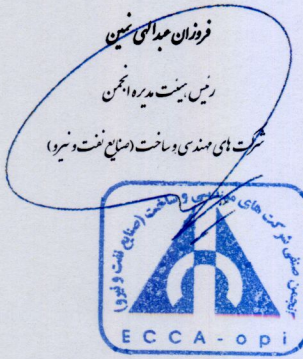 فروزان عبدالهی ثمین
رئیس هیئت مدیره انجمن
شرکت های مهندسی و ساخت (صنایع نفت و نیرو)
انجمن صنفی شرکت های مهندسی و ساخت (صنایع نفت و نیرو)
ECCA-opi